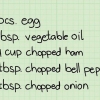 ocs. egg
tbsp. vegetable oil
cup chopped ham
tbsp. chopped bell pep
tbsp. chopped onion